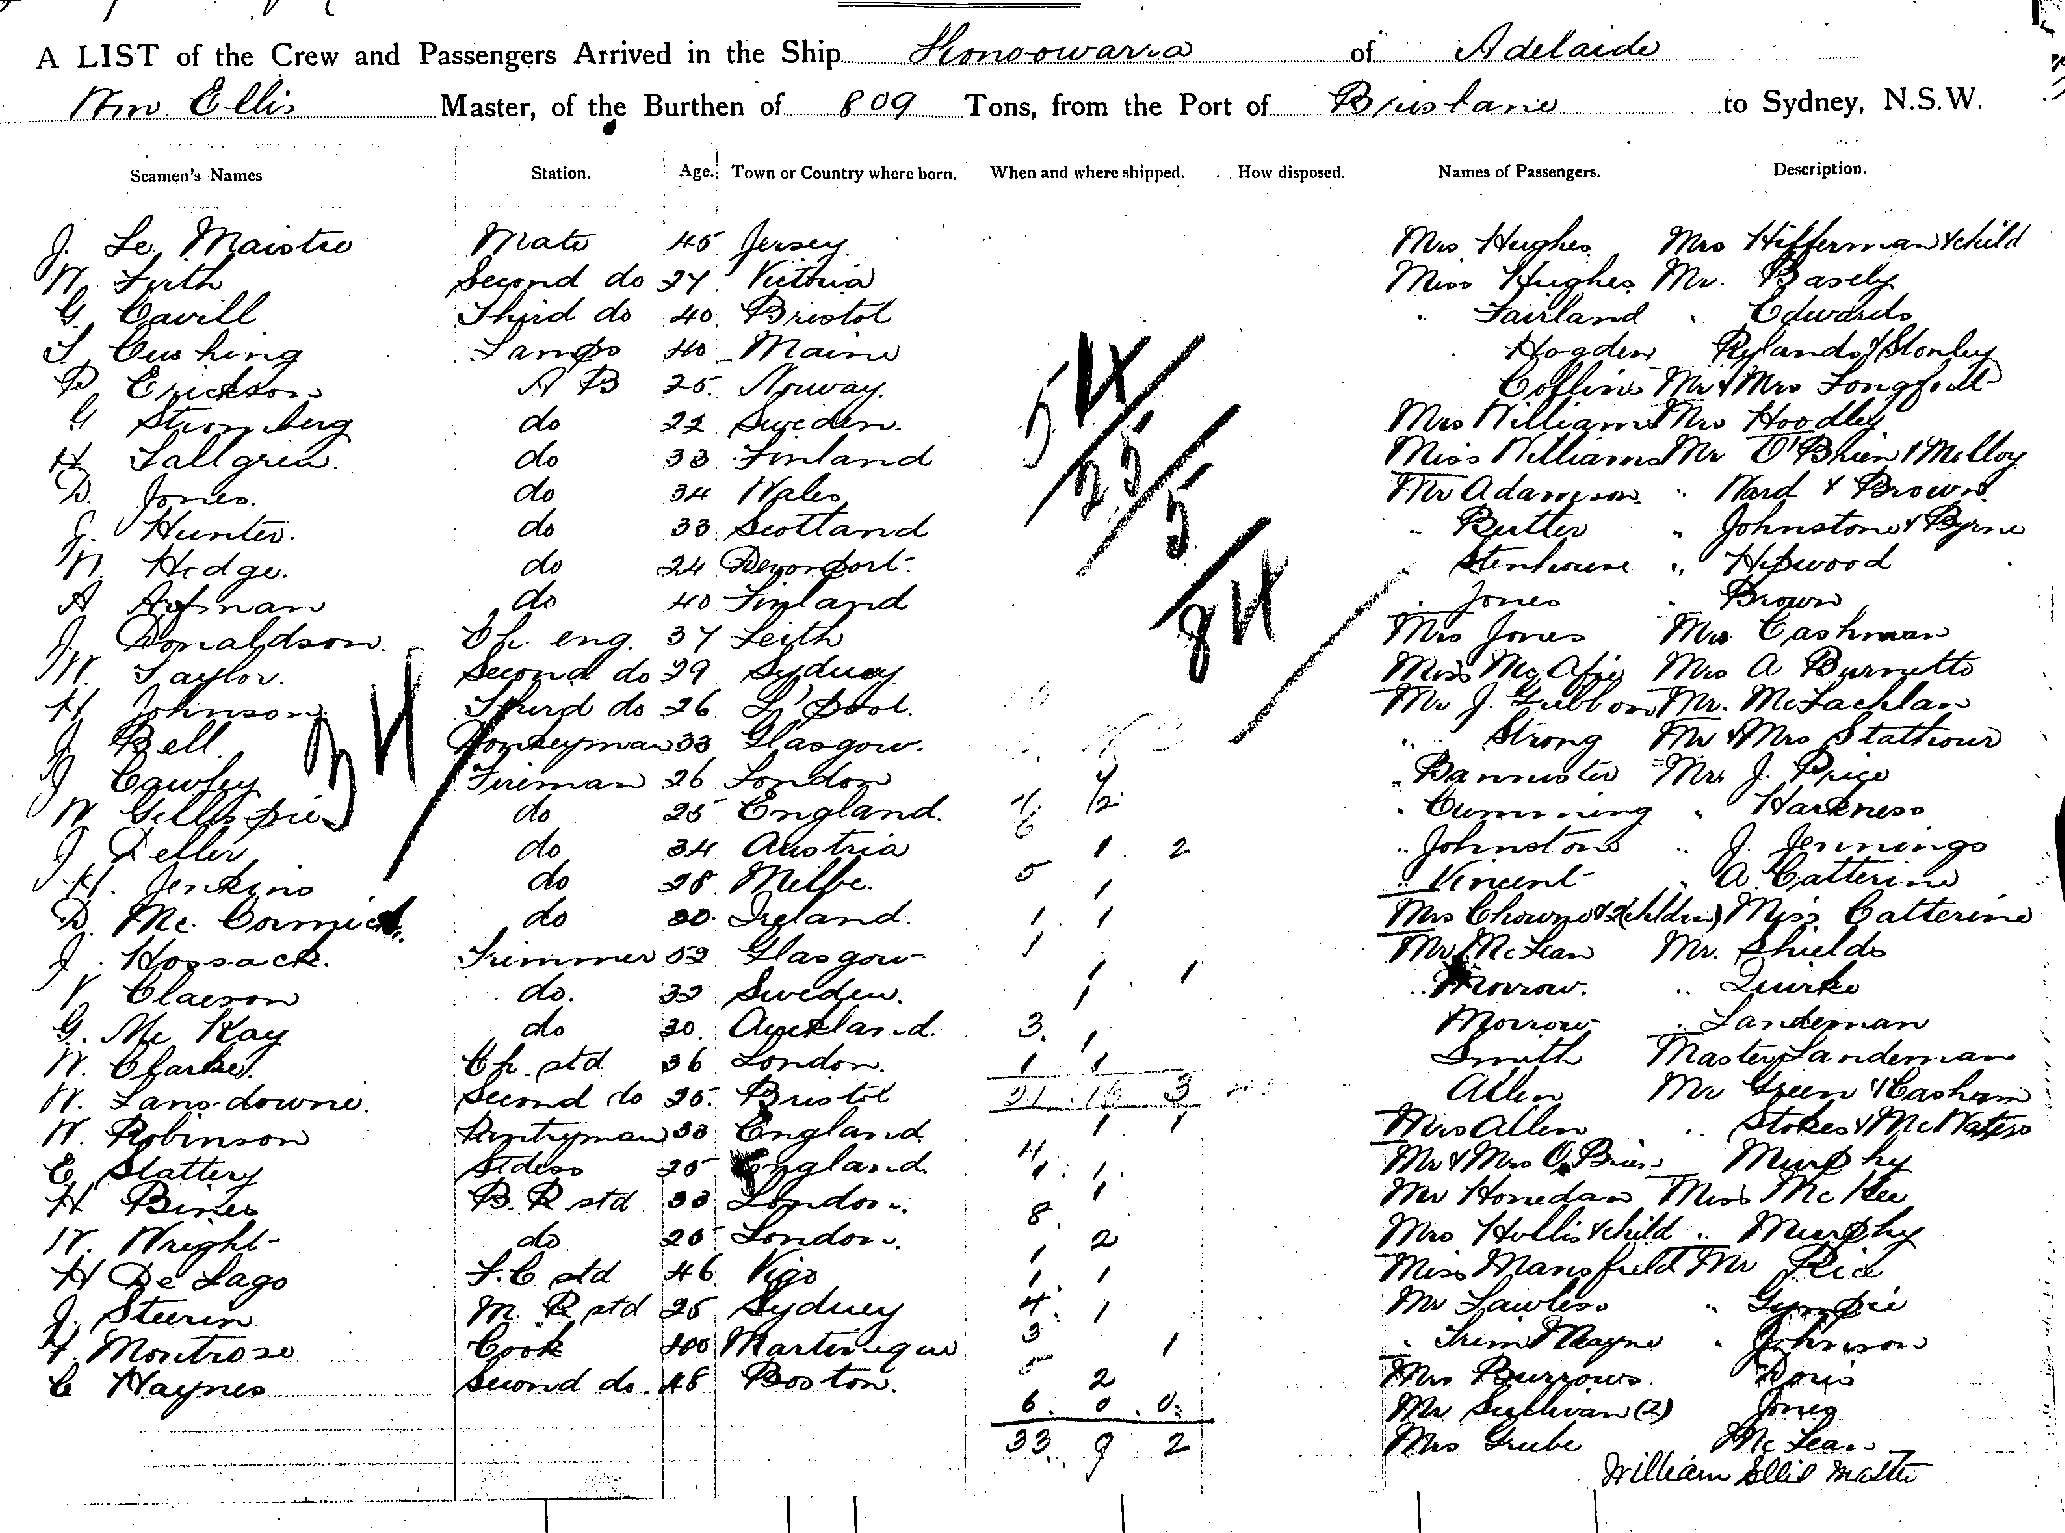 A LIST of the Crew and Passengers Arrived in the Ship Konoowarra of Adelaide
Wm Ellis Master, of the Burthen of 809 Tons, from the Port of Brisbane to Sydney, N.S.W.
Seamen's Names Station. Age. Town or Country where born. When and where shipped. How disposed. Names of Passengers. Description.
J. Le Maistre Mate 45 Jersey Mrs Hughes Mrs Hifferman & child
W. Firth Second do 27 Victoria Miss Hughes Mr. Basely
G. Cavill Third do 40 Bristol " Fairland " Edwards
T. Cushing Lamps 40 Maine Hogden Rylands & Stonley
B Erickson A B 25 Norway Collins Mr & Mrs Longfield
G Stromberg do 22 Sweden. Mrs Williams Mrs Hoodley
H Tallgren. do 33 Finland Miss Williams Mr O'Brien & Melloy
D. Jones. do 34 Wales Mr Adamson " Ward & Brown
J. Hunter. do 33 Scotland " Butler " Johnstone & Byrne
W Hodge. do 24 Devonport. Stenhouse " Hipwood
A do 40 Finland " Jones " Brown
J Donaldson. Ch. eng. 37 Leith Mrs Jones Mrs Cashman
W. Taylor. Second do 29 Sydney Miss McAfee Mrs A Burnette
H Johnson Third do 26 L'Pool. Mr J. Gubbon Mr. McLachlan
J Bell. Donkeyman 33 Glasgow. " Strong Mr & Mrs
J Cawley Fireman 26 London " Bannister Mrs J. Price
W Gillespie do 25 England. " Cumming " Harkness
J Deller do 34 Austria 1 2 " Johnston " J. Jennings
H. Jenkins do 28 Melbe. 5 1 " Vincent " A Catterine
D. McCormick do 30 Ireland. 1 1 Mrs Chowne & 2 (children) Miss Catterine
J. Hossack. Trimmer 52 Glasgow 1 Mr McLean Mr. Shields
V Claeson do. 32 Sweden. 1 1 " Morrow. " Quirke
G. McKay do 30 Auckland. 3. 1 Morrow " Landeman
W. Clarke. Ch. std 36 London. 1 1 Smith Master Landeman
W. Lansdowne. Second do 25. Bristol 21 16 3 Allen Mr Green & Casham
W. Robinson Pantryman 33 England 1 1 Mrs Allen " Stokes & McWaters
E Slattery Stdess 25 England. 4 1 1 Mr & Mrs O'Brien Murphy
H Bines B. R std 33 London. 8 1 Mr Honedan Miss McKee
W. Wright do 25 London. 1 2 Mrs Hollis & child " Murphy
H De Lago F.C std 46 Vigo 1 1 Miss Mansfield Mr Rice
J. Steerin M. R std 25 Sydney 4 1 Mr Lawless " Gympie
F. Montrose Cook 400 Martinique 3 1 " Trim Mayne " Johnson
C Haynes Second do. 48 Boston. 5 2 Mrs Burrows. Doris
6 0 0 Mr Sullivan (2) Jones
33 9 2 Mrs Grube McLean
William Ellis Master
54
25
5
84
34